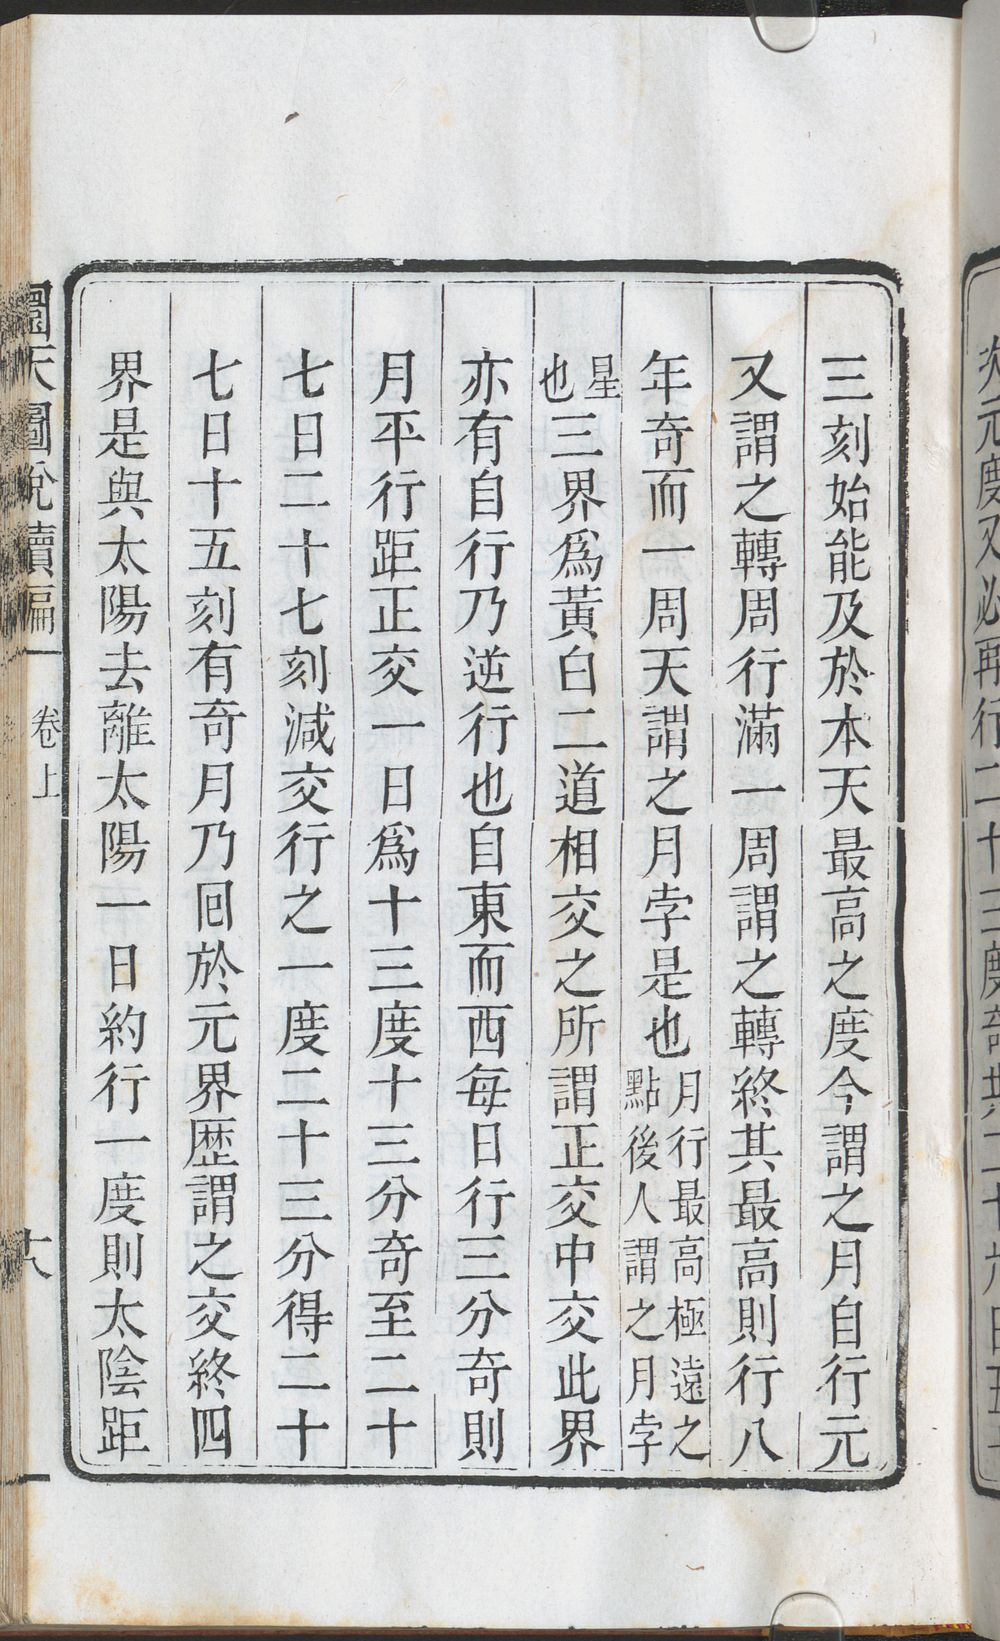 三刻始能及於本天最高之度今謂之月自行元
又謂之轉周行滿一周謂之轉終其最高則行八
年奇而一周天謂之月孛是也月行最高極遠之點後人謂之月孛
星也三界為黃白二道相交之所謂正交中交此界
亦有自行乃逆行也自東而西每日行三分奇則
月平行距正交一日為十三度十三分奇至二十
七日二十七刻減交行之一度二十三分得二十
七日十五刻有奇月乃囘於元界歴謂之交終四
界是與太陽去離太陽一日約行一度則太陰距
圜天圖說續編
卷上
十八